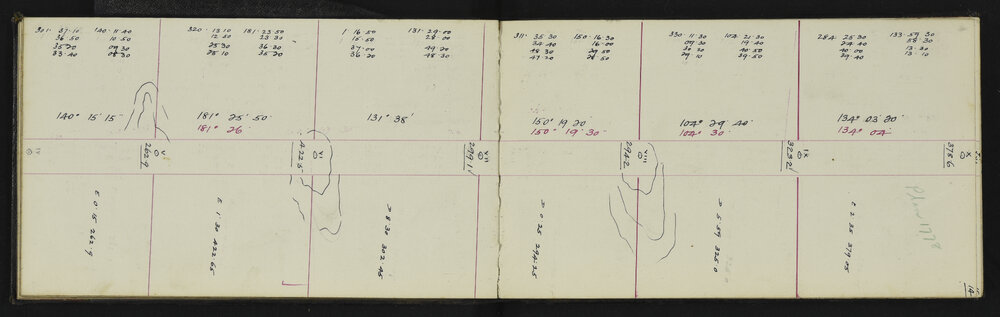 301 · 37 · 10 140 · 11 · 40
36 · 50 10 · 50
35 · 20 09 · 30
33 · 40 08 · 30
140° 15' 15"
320 · 13 · 10 181 · 23 · 50
12 · 50 23 · 30
25 · 30 36 · 30
25 · 10 35 · 20
181° 25' 50
181° 26'
1 · 16 · 50 131 · 29 · 00
15 · 50 28 · 00
37 · 00 49 · 20
36 · 20 48 · 30
131° 38'
311 · 35 · 30 150 · 16 · 30
34 · 40 16 · 00
48 · 30 29 · 50
47 · 20 28 · 50
150° 19' 20
150° 19' 30
330 · 11 · 30 104 · 21 · 30
09 · 30 19 · 40
30 · 20 40 · 50
29 · 10 39 · 50
104° 29' 40
104° 30'
284 · 25 · 30 133 · 59 · 30
24 · 40 58 · 30
40 · 00 13 · 20
39 · 40 13 · 10
134° 03' 20
134° 04'
262.9
V
422.5
VI
299.1
VII
294.2
VIII
323.2
IX
378.6
X
5 · 0 · 15 262.9
5 · 1 · 30 422.65
3 · 0 · 25 294.25
3 · 5 · 59 325.0
2 · 2 · 35 379.05
Plan 1778
14